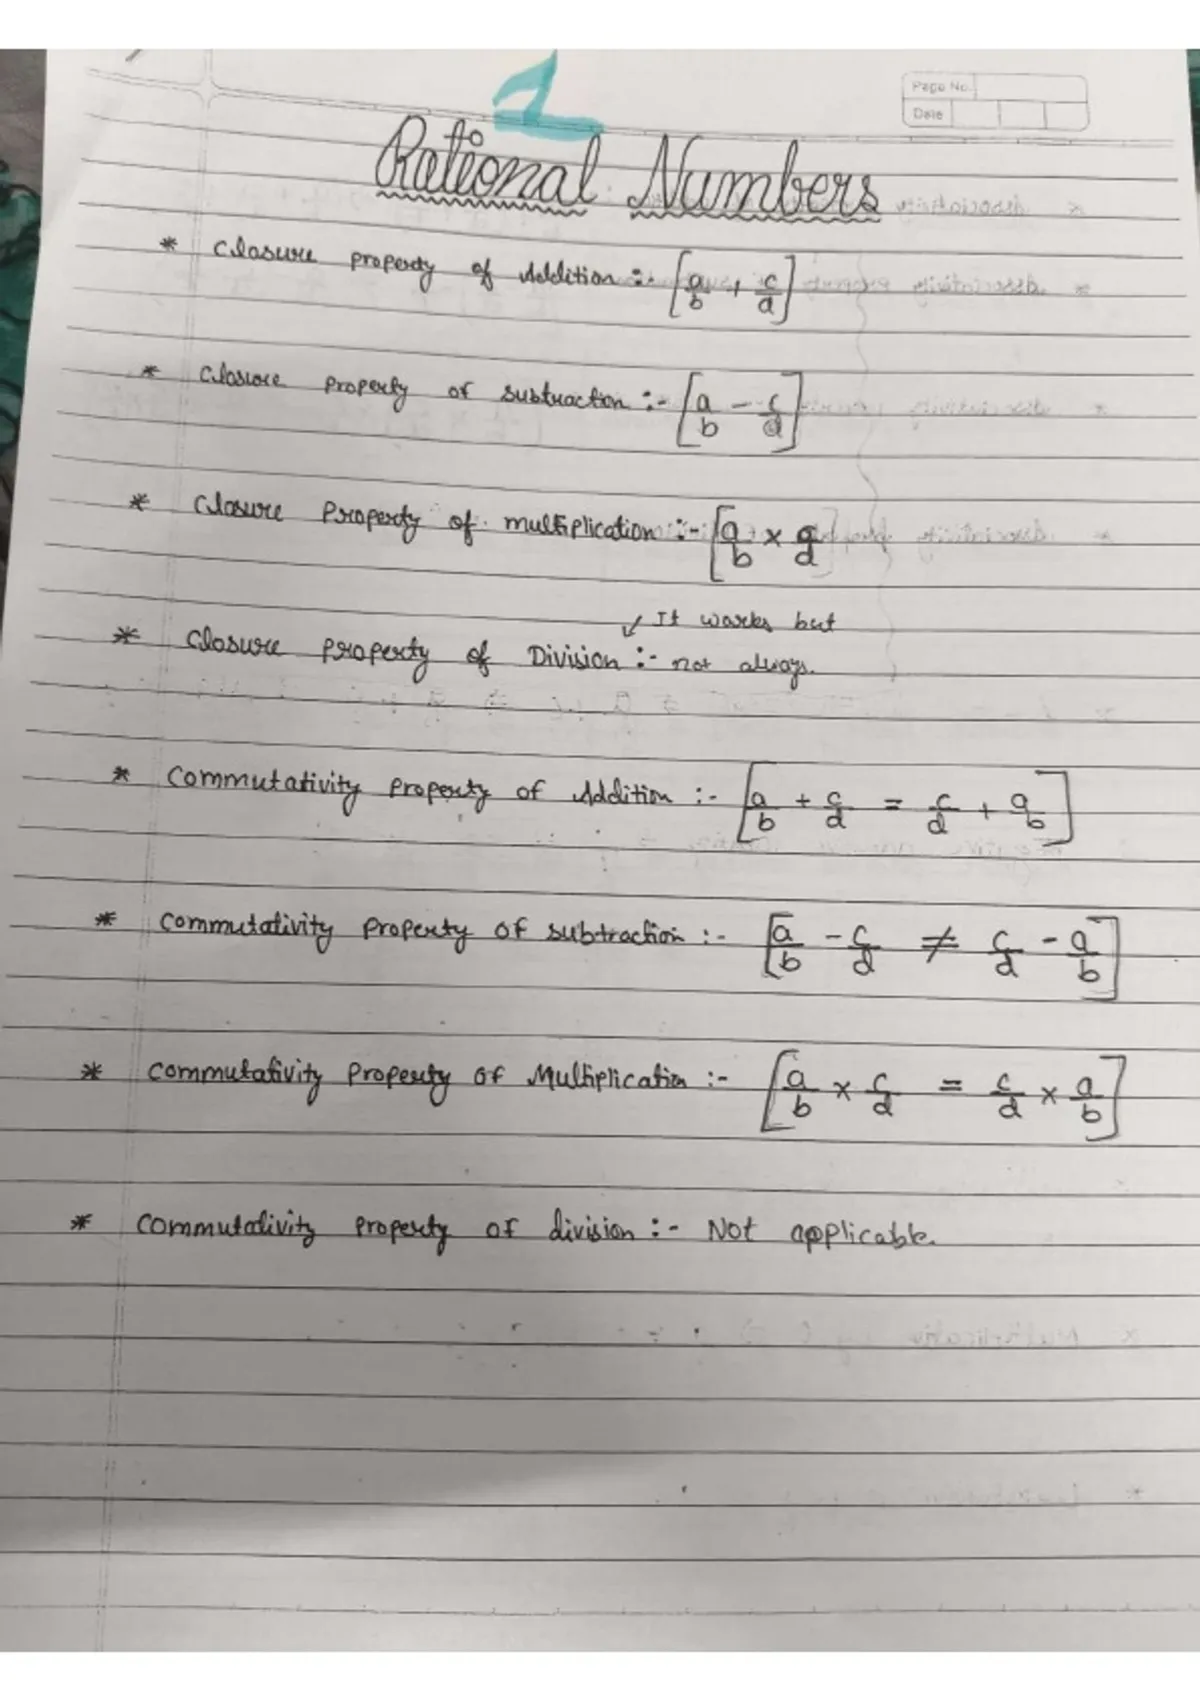 1
Page No.
Date
Rational Numbers
* Closure property of Addition :- [a/b + c/d]
* Closure property of subtraction :- [a/b - c/d]
* Closure Property of multiplication :- [a/b × c/d]
↙ It works but
* Closure property of Division :- not always.
* Commutativity Property of Addition :- [a/b + c/d = c/d + a/b]
* Commutativity Property of subtraction :- [a/b - c/d ≠ c/d - a/b]
* Commutativity Property of Multiplication :- [a/b × c/d = c/d × a/b]
* Commutativity Property of division :- Not applicable.